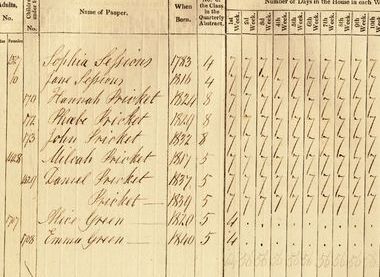 Adults, Number of Days in the House in each W
No. Childre under Name of Pauper. When Born. the Class in the Quarterly Abstract. 1st Week. 2d Week. 3d Week. 4th Week. 5th Week. 6th Week. 7th Week. 8th Week. 9th Week. 10th Week.
Males Females
Sophia Sessions 1783 4 7 7 7 7 7 7 7 7 7 7
10 Jane Sessions 1816 4 7 7 7 7 7 7 7 7 7 7
170 Hannah Pricket 1824 8 7 7 7 7 7 7 7 7 7 7
172 Phebe Pricket 1829 8 7 7 7 7 7 7 7 7 7 7
173 John Pricket 1832 8 7 7 7 7 7 7 7 7 7 7
1428 Pricket 1817 5 7 7 7 7 7 7 7 7 7 7
1429 Daniel Pricket 1837 5 7 7 7 7 7 7 7 7 7 7
Pricket — 1839 5 7 7 7 7 7 7 7 7 7 7
1707 Alice Green 1820 5 4
1708 Emma Green — 1840 5 4